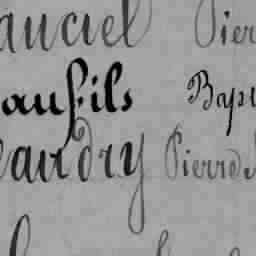 auciel Pier
aufils Bap
andry Pierre